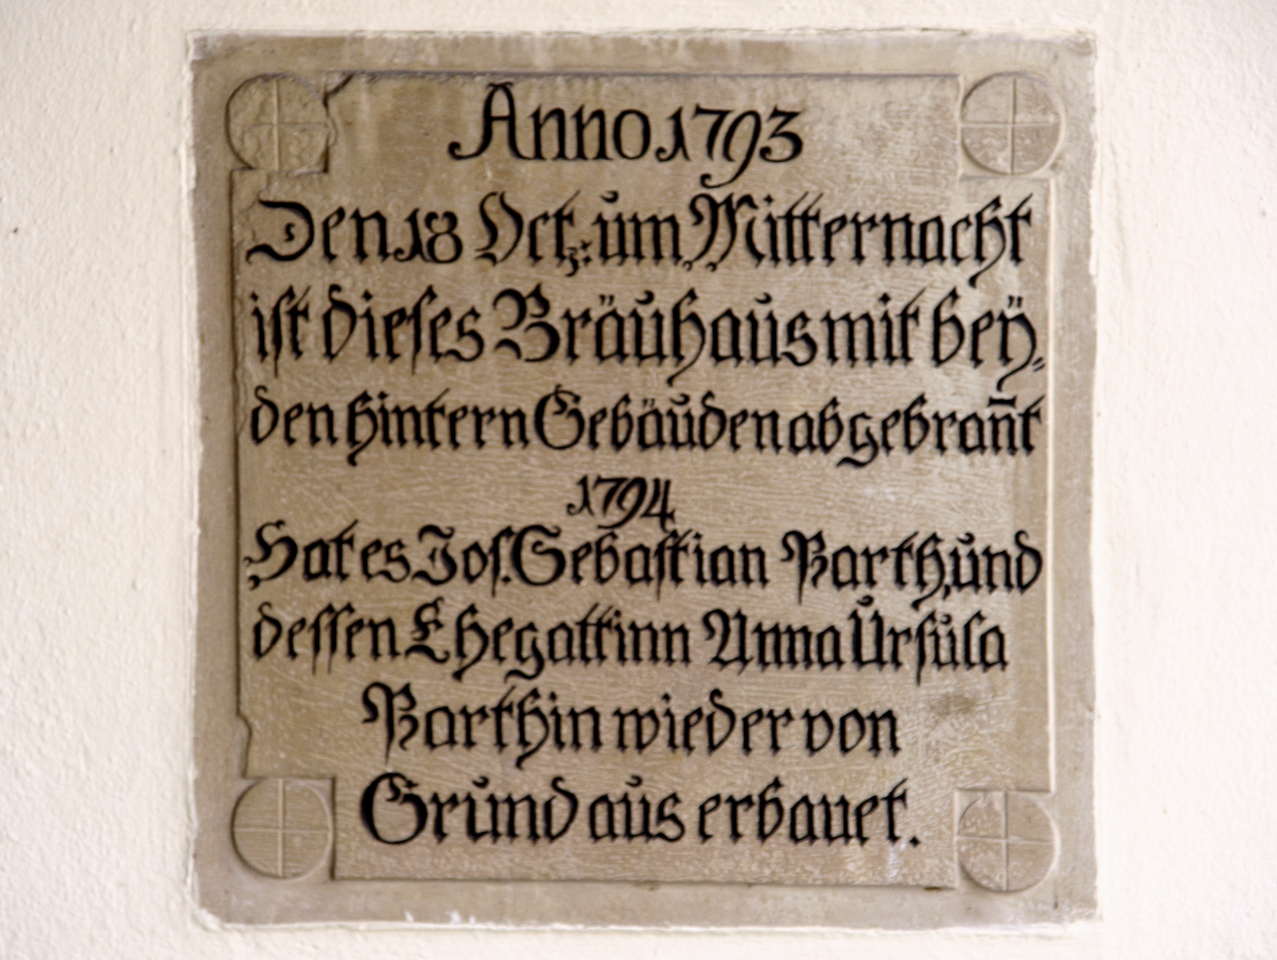 Anno 1793
Den 18 Octz: um Mitternacht
ist dieses Bräuhaus mit beÿ⸗
den hintern Gebäuden abgebrañt
1794
Hat es Jos. Sebastian Barth, und
dessen Ehegattinn Anna Ursula
Barthin wieder von
Grund aus erbauet.